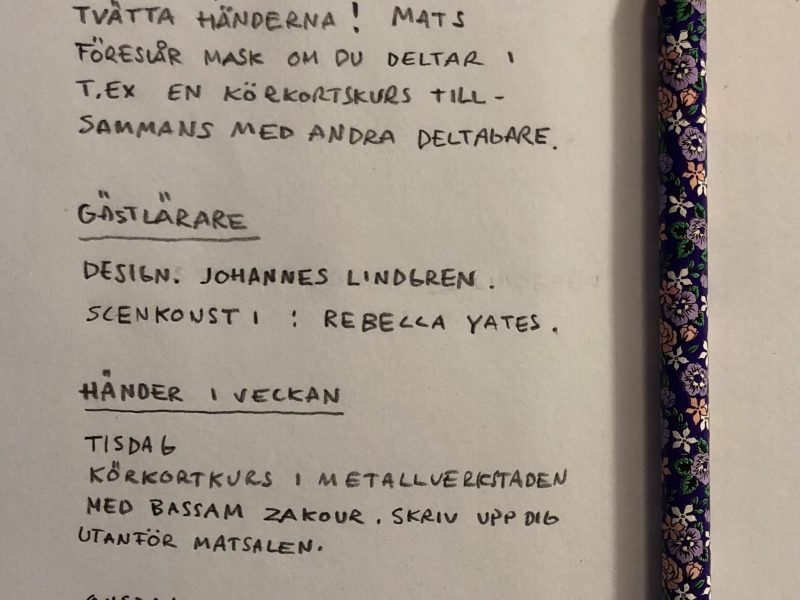 TVÄTTA HÄNDERNA! MATS
FÖRESLÅR MASK OM DU DELTAR I
T.EX EN KÖRKORTSKURS TILL-
SAMMANS MED ANDRA DELTAGARE.
GÄSTLÄRARE
DESIGN. JOHANNES LINDGREN.
SCENKONST I : REBECCA YATES.
HÄNDER I VECKAN
TISDAG
KÖRKORTKURS I METALLVERKSTADEN
MED BASSAM ZAKOUR. SKRIV UPP DIG
UTANFÖR MATSALEN.